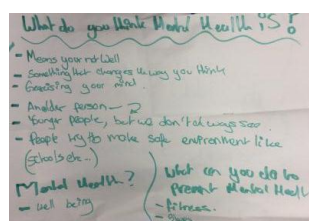 What do you think Mental Health is?
- Means your not well
- Something that changes the way you think
- your mind
- Another person — 2
- Younger people, but we don't always see
- People try to make safe environment like
(schools etc...)
Mental Health?
- well being
What can you do to
prevent Mental Health
- fitness